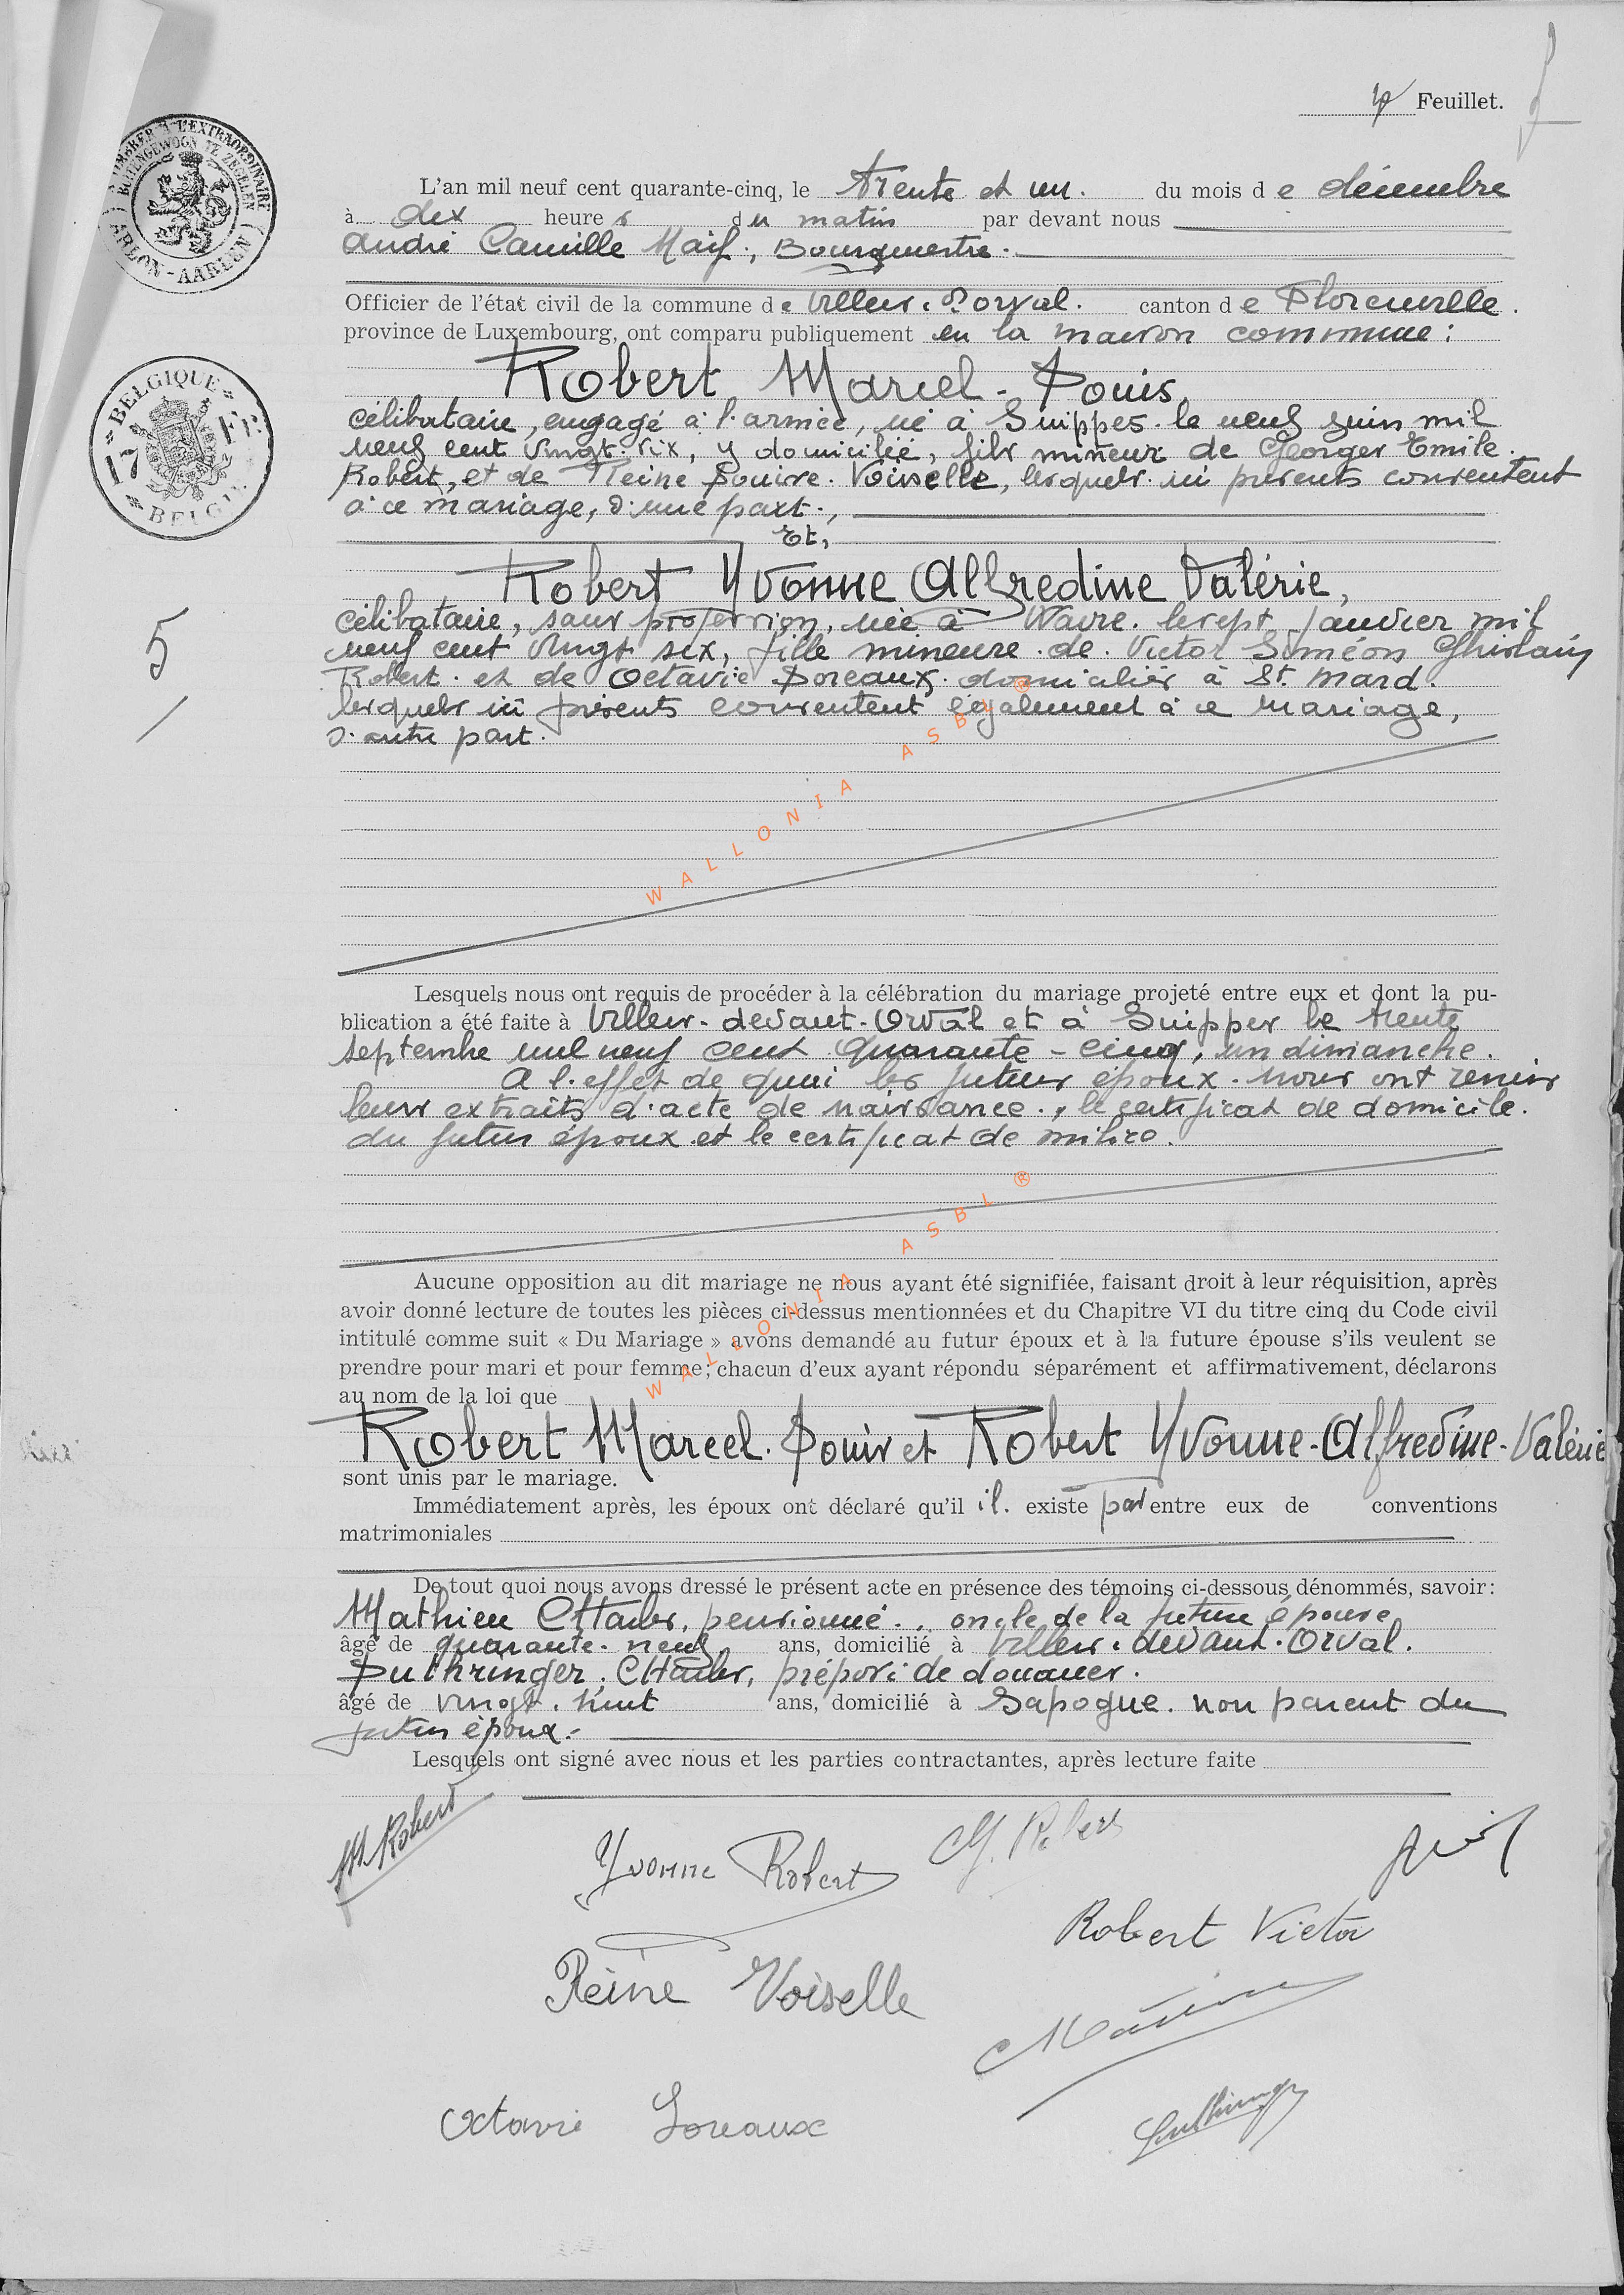 4e Feuillet.
A TIMBRER A L'EXTRAORDINAIRE
BUITENGEWOON TE ZEGELEN
ARLON-AARLEN
L'an mil neuf cent quarante-cinq, le trente et un. du mois de décembre
à dix heures du matin par devant nous
André Camille Maif, Bourgmestre.
Officier de l'état civil de la commune de Villers-d'Orval. canton de Florenville.
province de Luxembourg, ont comparu publiquement en la maison commune:
BELGIQUE
17 Fr
BELGIE
Robert Marcel-Louis,
célibataire, engagé à l'armée, né à Suippes le neuf juin mil
neuf cent vingt-six, y domicilié, fils mineur de Georges Emile
Robert, et de Reine Louise Voiselle, lesquels ici présents consentent
à ce mariage, d'une part.,
Et,
Robert Yvonne Alfredine Valérie,
célibataire, sans profession, née à Wavre le sept janvier mil
neuf cent vingt six, fille mineure de Victor Siméon Ghislain
Robert et de Octavie Loreaux domiciliés à St. Mard.
lesquels ici présents consentent également à ce mariage,
d'autre part.
5
WALLONIA ASBL ®
Lesquels nous ont requis de procéder à la célébration du mariage projeté entre eux et dont la pu-
blication a été faite à Villers-devant-Orval et à Suippes le trente
septembre mil neuf cent quarante-cinq, un dimanche.
A l'effet de quoi les futurs époux nous ont remis
leurs extraits d'acte de naissance, le certificat de domicile
du futur époux et le certificat de milice.
WALLONIA ASBL ®
Aucune opposition au dit mariage ne nous ayant été signifiée, faisant droit à leur réquisition, après
avoir donné lecture de toutes les pièces ci-dessus mentionnées et du Chapitre VI du titre cinq du Code civil
intitulé comme suit « Du Mariage » avons demandé au futur époux et à la future épouse s'ils veulent se
prendre pour mari et pour femme; chacun d'eux ayant répondu séparément et affirmativement, déclarons
au nom de la loi que
Robert Marcel-Louis et Robert Yvonne-Alfredine-Valérie
sont unis par le mariage.
Immédiatement après, les époux ont déclaré qu'il il. existe pas entre eux de conventions
matrimoniales
De tout quoi nous avons dressé le présent acte en présence des témoins ci-dessous dénommés, savoir:
Mathieu Charles, pensionné, oncle de la future épouse
âgé de quarante-neuf ans, domicilié à Villers-devant-Orval.
Luthringer Charles, préposé de douanes.
âgé de vingt-huit ans, domicilié à Sapogne. non parent du
futur époux.
Lesquels ont signé avec nous et les parties contractantes, après lecture faite
M. Robert
Yvonne Robert
G. Robert
Robert Victor
Reine Voiselle
Octavie Loreaux
Luthringer